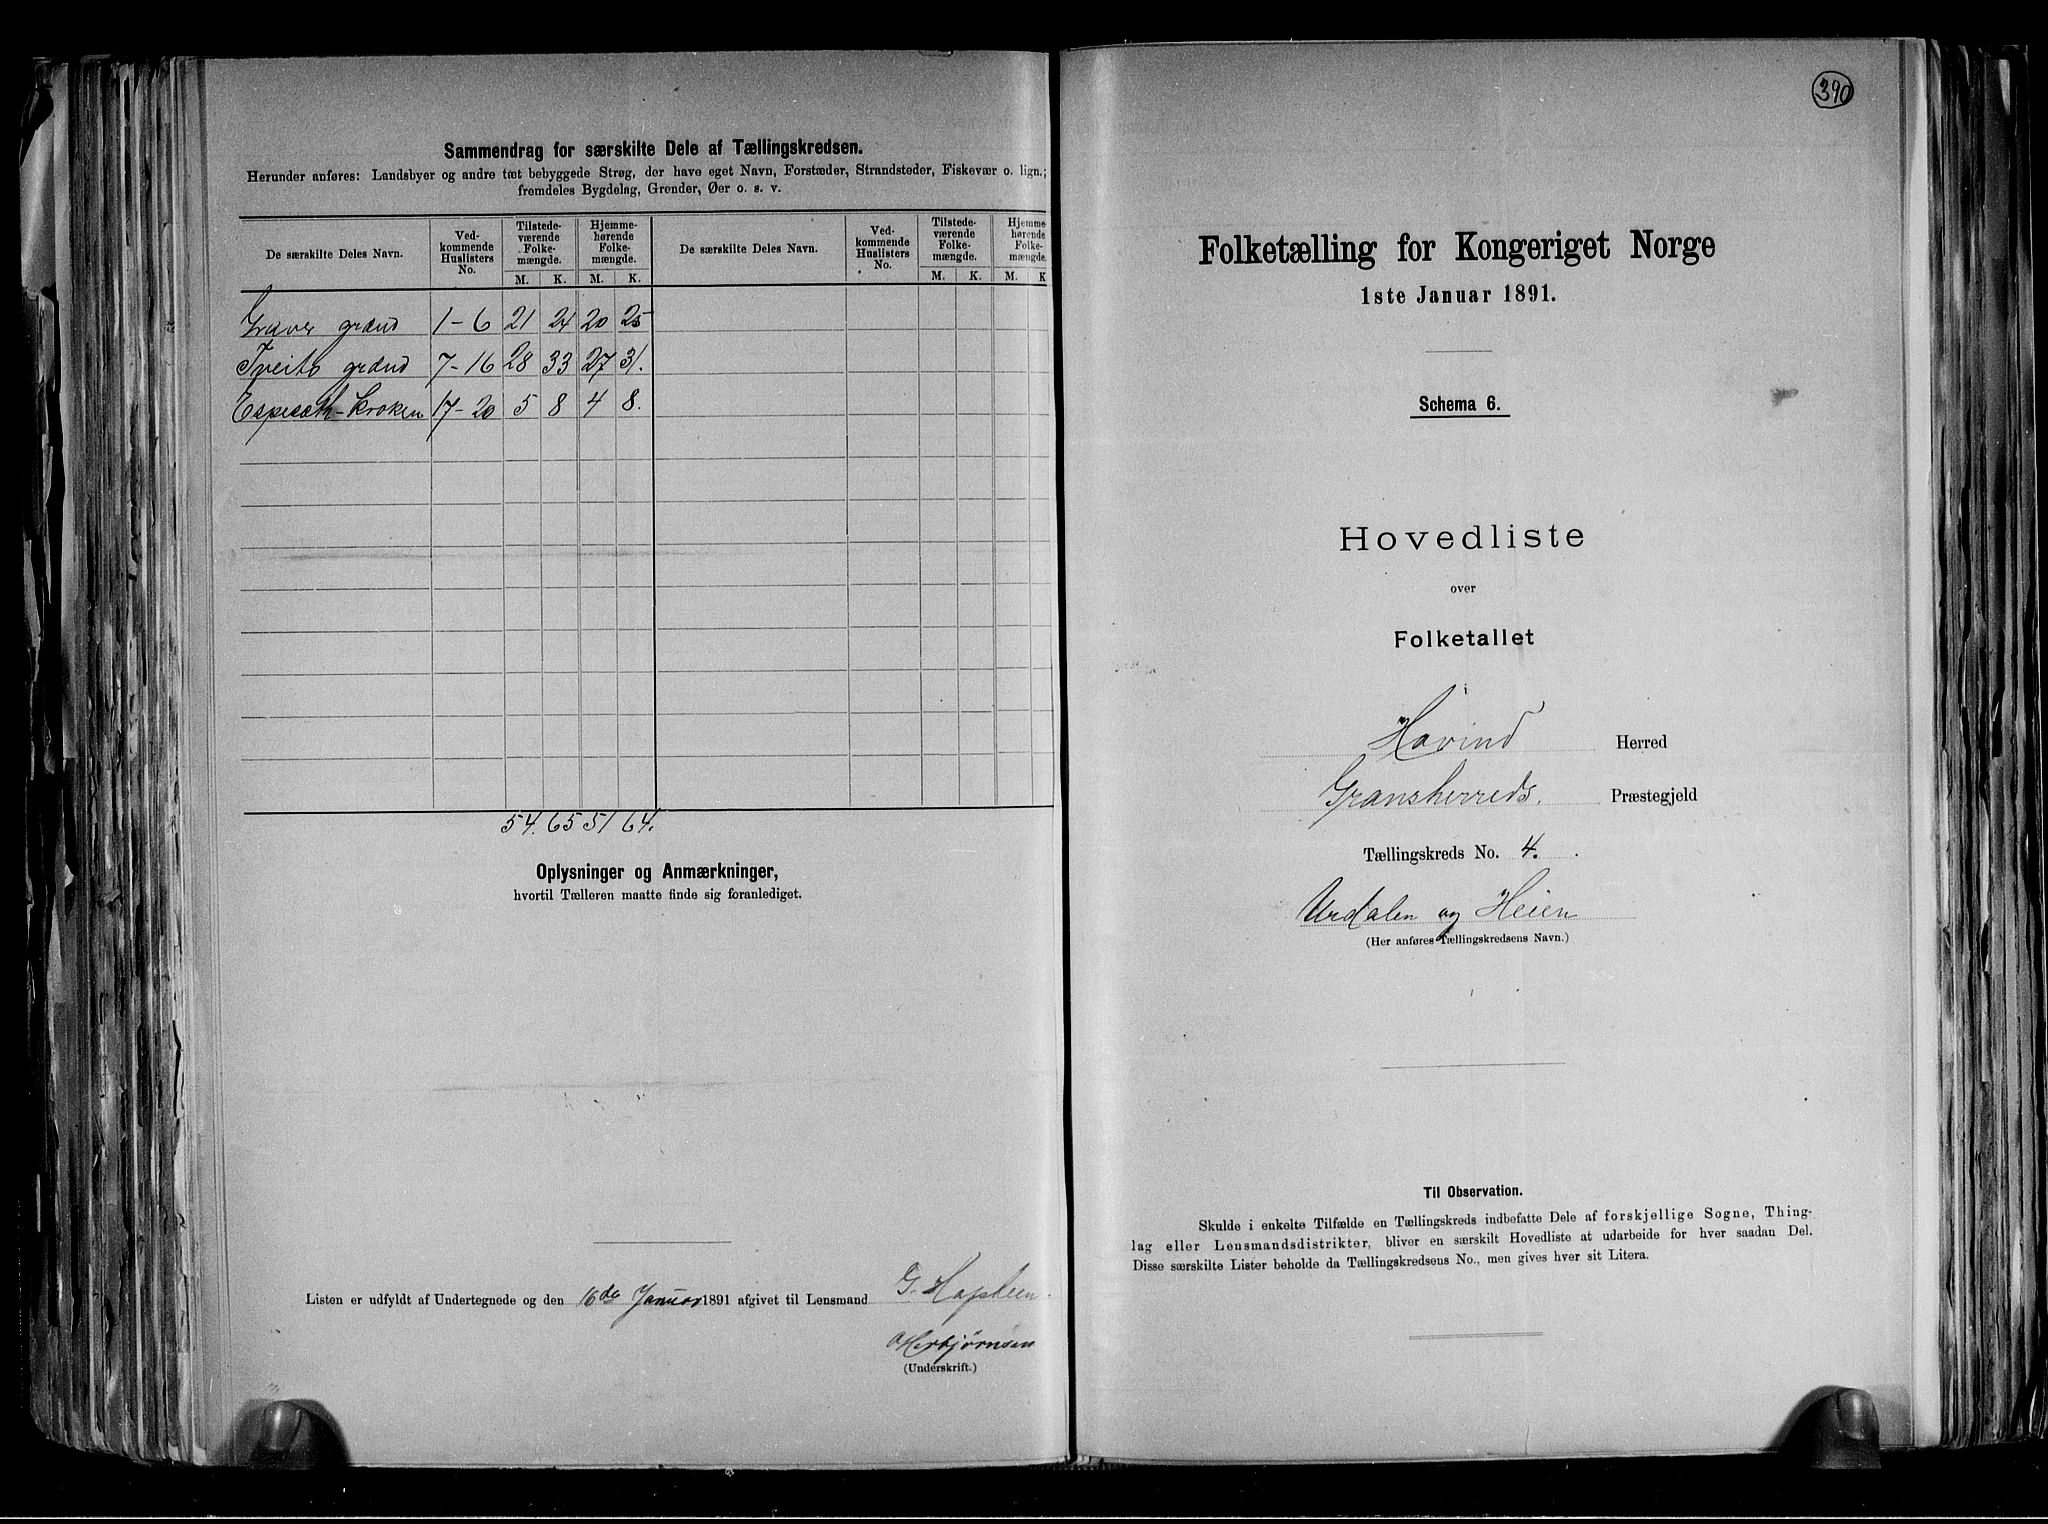 Sammendrag for særskilte Dele af Tællingskredsen.
Herunder anføres: Landsbyer og andre tæt bebyggede Strøg, der have eget Navn, Forstæder, Strandsteder, Fiskevær o. lign.;
fremdeles Bygdelag, Grender, Øer o. s. v.
De særskilte Deles Navn. Ved-kommende Huslisters No. Tilstede-værende Folke-mængde. Hjemme-hørende Folke-mængde. De særskilte Deles Navn. Ved-kommende Huslisters No. Tilstede-værende Folke-mængde. Hjemme-hørende Folke-mængde.
M. K. M. K. M. K. M. K
Graver grænd 1-6 21 24 20 25
Tveito grænd 7-16 28 33 27 31.
Espesæth-Kroken 17-20 5 8 4 8.
54. 65 51 64.
Oplysninger og Anmærkninger,
hvortil Tælleren maatte finde sig foranlediget.
Listen er udfyldt af Undertegnede og den 16de Januar 1891 afgivet til Lensmand G.
Herbjørnsen
(Underskrift.)
390
Folketælling for Kongeriget Norge
1ste Januar 1891.
Schema 6.
Hovedliste
over
Folketallet
Hovind Herred
Gransherreds. Præstegjeld
Tællingskreds No. 4.
Urdalen og Heien
(Her anføres Tællingskredsens Navn.)
Til Observation.
Skulde i enkelte Tilfælde en Tællingskreds indbefatte Dele af forskjellige Sogne, Thing-
lag eller Lensmandsdistrikter, bliver en særskilt Hovedliste at udarbeide for hver saadan Del.
Disse særskilte Lister beholde da Tællingskredsens No., men gives hver sit Litera.